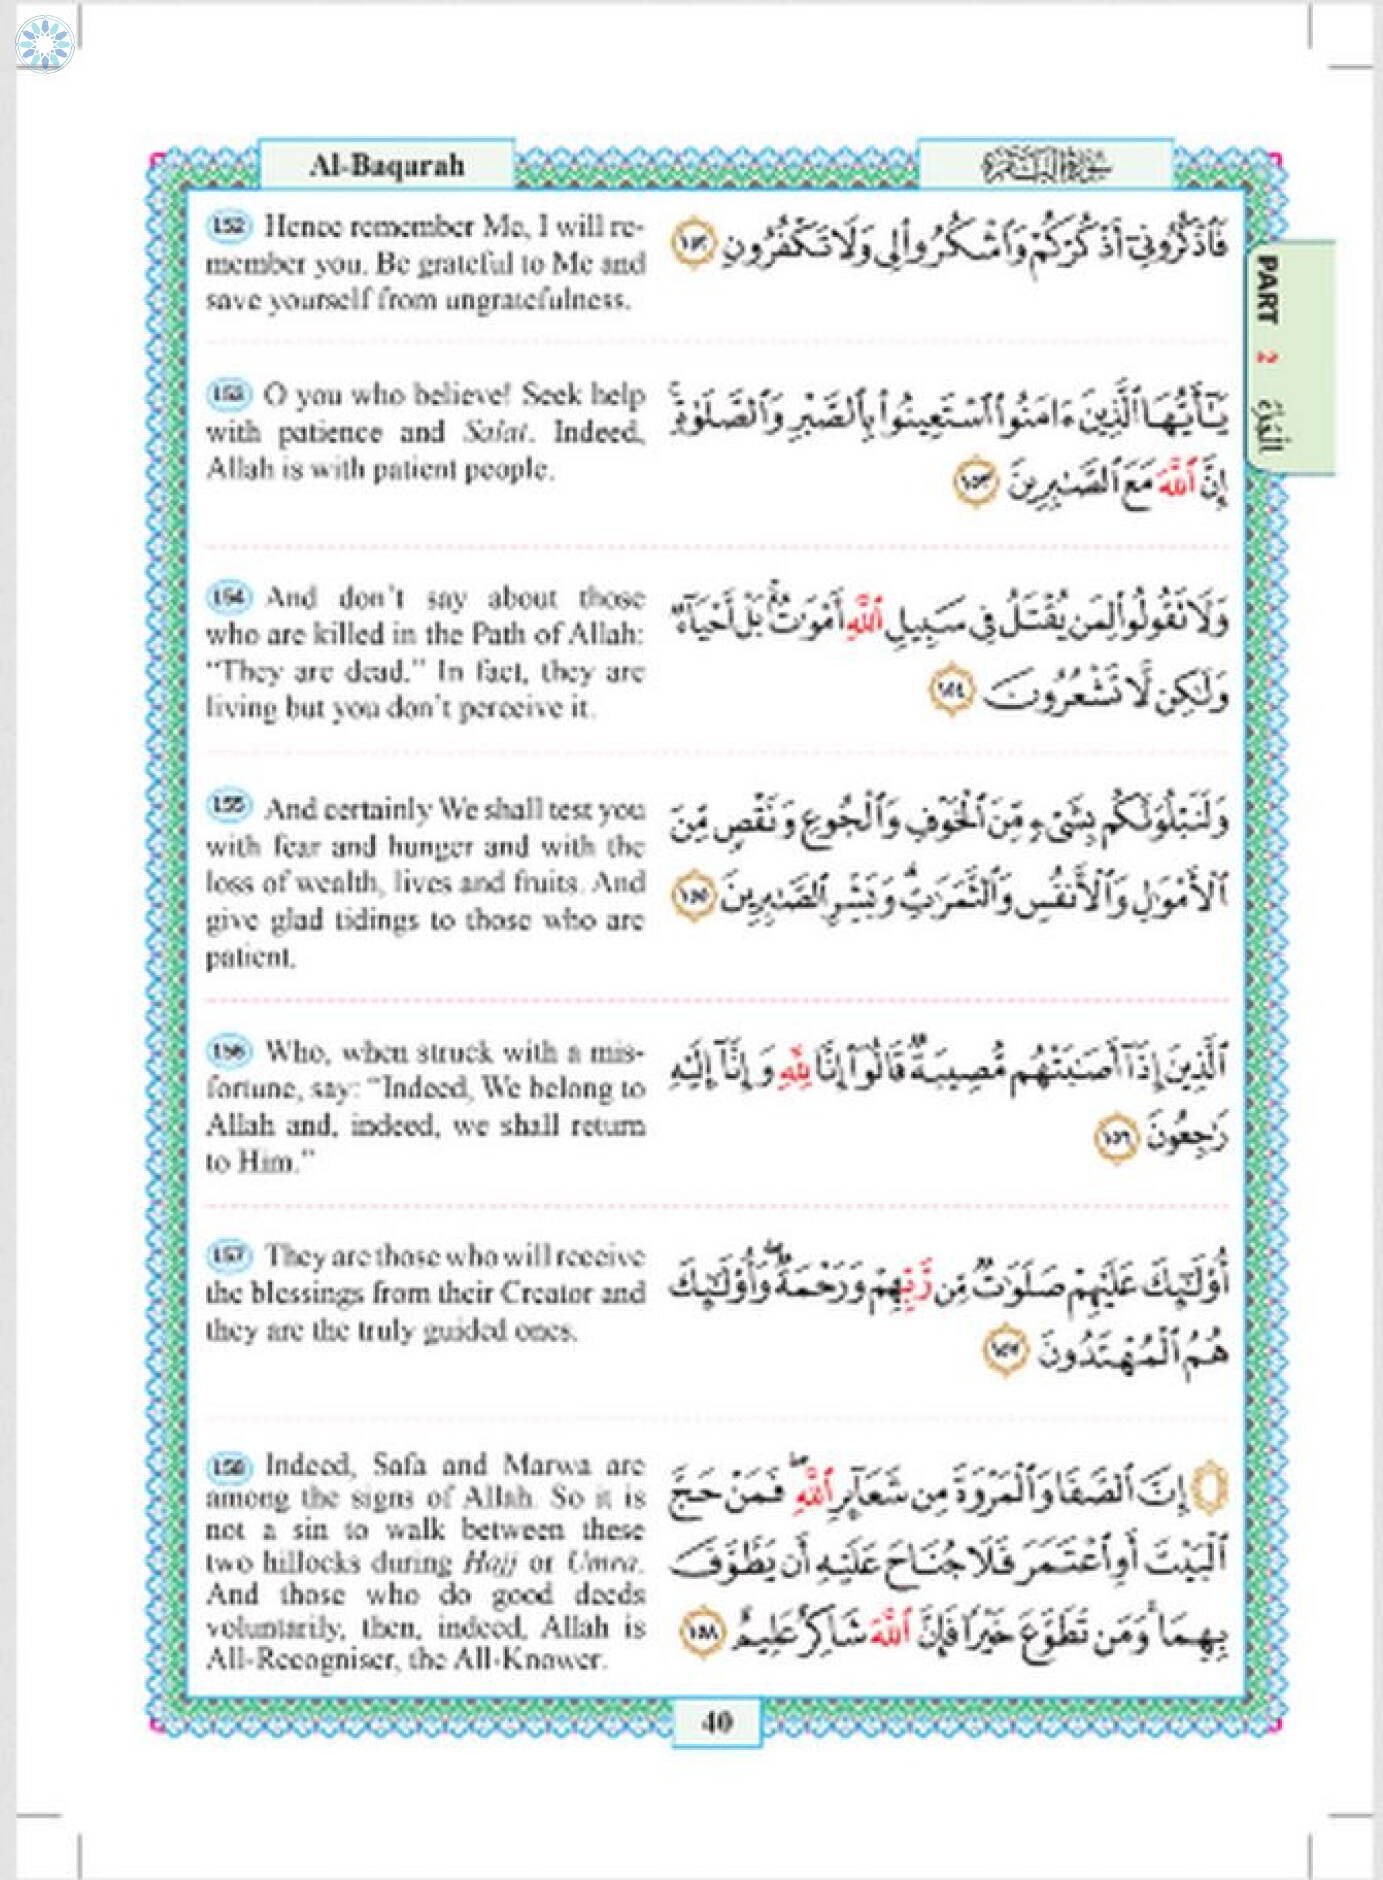 Al-Baqurah
سورة البقرة
PART 2 الجزء
152 Hence remember Me, I will re-
member you. Be grateful to Me and
save yourself from ungratefulness.
فَٱذْكُرُونِىٓ أَذْكُرْكُمْ وَٱشْكُرُوا۟ لِى وَلَا تَكْفُرُونِ ١٥٢
153 O you who believe! Seek help
with patience and Salat. Indeed,
Allah is with patient people.
يَـٰٓأَيُّهَا ٱلَّذِينَ ءَامَنُوا۟ ٱسْتَعِينُوا۟ بِٱلصَّبْرِ وَٱلصَّلَوٰةِ ۚ
إِنَّ ٱللَّهَ مَعَ ٱلصَّـٰبِرِينَ ١٥٣
154 And don't say about those
who are killed in the Path of Allah:
“They are dead.” In fact, they are
living but you don't perceive it.
وَلَا تَقُولُوا۟ لِمَن يُقْتَلُ فِى سَبِيلِ ٱللَّهِ أَمْوَٰتٌۢ ۚ بَلْ أَحْيَآءٌ
وَلَـٰكِن لَّا تَشْعُرُونَ ١٥٤
155 And certainly We shall test you
with fear and hunger and with the
loss of wealth, lives and fruits. And
give glad tidings to those who are
patient.
وَلَنَبْلُوَنَّكُم بِشَىْءٍ مِّنَ ٱلْخَوْفِ وَٱلْجُوعِ وَنَقْصٍ مِّنَ
ٱلْأَمْوَٰلِ وَٱلْأَنفُسِ وَٱلثَّمَرَٰتِ ۗ وَبَشِّرِ ٱلصَّـٰبِرِينَ ١٥٥
156 Who, when struck with a mis-
fortune, say: “Indeed, We belong to
Allah and, indeed, we shall return
to Him.”
ٱلَّذِينَ إِذَآ أَصَـٰبَتْهُم مُّصِيبَةٌ قَالُوٓا۟ إِنَّا لِلَّهِ وَإِنَّآ إِلَيْهِ
رَٰجِعُونَ ١٥٦
157 They are those who will receive
the blessings from their Creator and
they are the truly guided ones.
أُو۟لَـٰٓئِكَ عَلَيْهِمْ صَلَوَٰتٌ مِّن رَّبِّهِمْ وَرَحْمَةٌ ۖ وَأُو۟لَـٰٓئِكَ
هُمُ ٱلْمُهْتَدُونَ ١٥٧
158 Indeed, Safa and Marwa are
among the signs of Allah. So it is
not a sin to walk between these
two hillocks during Hajj or Umra.
And those who do good deeds
voluntarily, then, indeed, Allah is
All-Recogniser, the All-Knower.
إِنَّ ٱلصَّفَا وَٱلْمَرْوَةَ مِن شَعَآئِرِ ٱللَّهِ ۖ فَمَنْ حَجَّ
ٱلْبَيْتَ أَوِ ٱعْتَمَرَ فَلَا جُنَاحَ عَلَيْهِ أَن يَطَّوَّفَ
بِهِمَا ۚ وَمَن تَطَوَّعَ خَيْرًا فَإِنَّ ٱللَّهَ شَاكِرٌ عَلِيمٌ ١٥٨
40